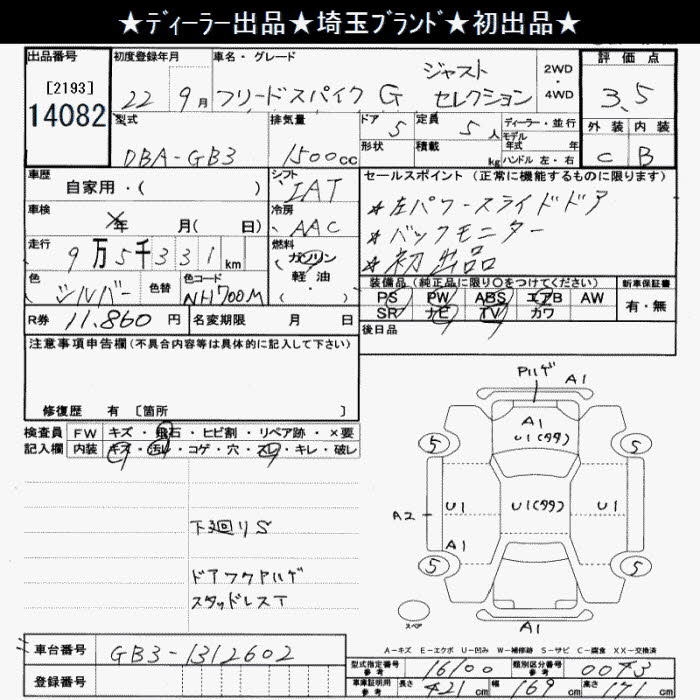 ★ディーラー出品★埼玉ブランド★初出品★
出品番号 初度登録年月 車名・グレード 評価点
[2193]
14082
22 9月 フリードスパイク G ジャストセレクション 2WD・4WD 3.5
型式 排気量 ドア 5 定員 5人 ディーラー・並行 外装 内装
DBA-GB3 1500cc 形状 積載 kg モデル年式 年 C B
ハンドル 左・右
車歴 シフト セールスポイント (正常に機能するものに限ります)
自家用・( ) IAT ★左パワースライドドア
車検 冷房 ★バックモニター
年 月( 日) AAC ★初出品
走行 燃料
9万5千331km ガソリン
軽油
色 色替 色コード 装備品 (純正品に限り〇をつけてください) 新車保証書
シルバー NH700M PS PW ABS エアB AW 有・無
SR ナビ TV カワ
R券 11.860円 名変期限 月 日 後日品
注意事項申告欄 (不具合内容等は具体的に記入して下さい)
修復歴 有 [箇所 ]
検査員 FW キズ・飛石・ヒビ割・リペア跡・×要
記入欄 内装 キズ・汚レ・コゲ・穴・スレ・キレ・破レ
下廻りS
ドアワクPハゲ
スタッドレスT
Pハゲ A1
A1
U1(タタ)
5 5
U1 U1(タタ) U1
A2
A1
5 5
スペア
A1
A-キズ E-エクボ U-凹み W-補修跡 S-サビ C-腐食 XX-交換済
車台番号 GB3-1312602
登録番号
型式指定番号 参考 16100 類別区分番号 参考 0043
車庫証明用 参考 長さ 421cm 幅 169cm 高さ 171cm